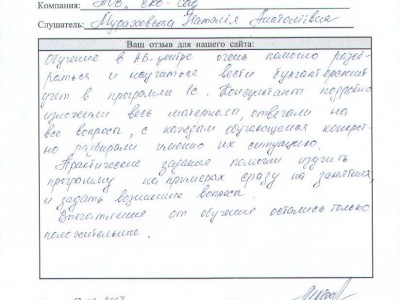 Компания: ТОВ "Еко-Сад"
Слушатель: Мураховська Наталія Анатоліївна
Ваш отзыв для нашего сайта:
Обучение в АБ-центре очень помогло разоб-
раться и научиться вести бухгалтерский
учет в программе 1С. Консультанты подробно
изложили весь материал, отвечали на
все вопросы, с каждым обучающимся конкрет-
но разбирали именно их ситуацию.
Практические задания помогли изучить
программу на примерах сразу на занятиях,
и задать возникшие вопросы.
Впечатления от обучения остались только
положительные.